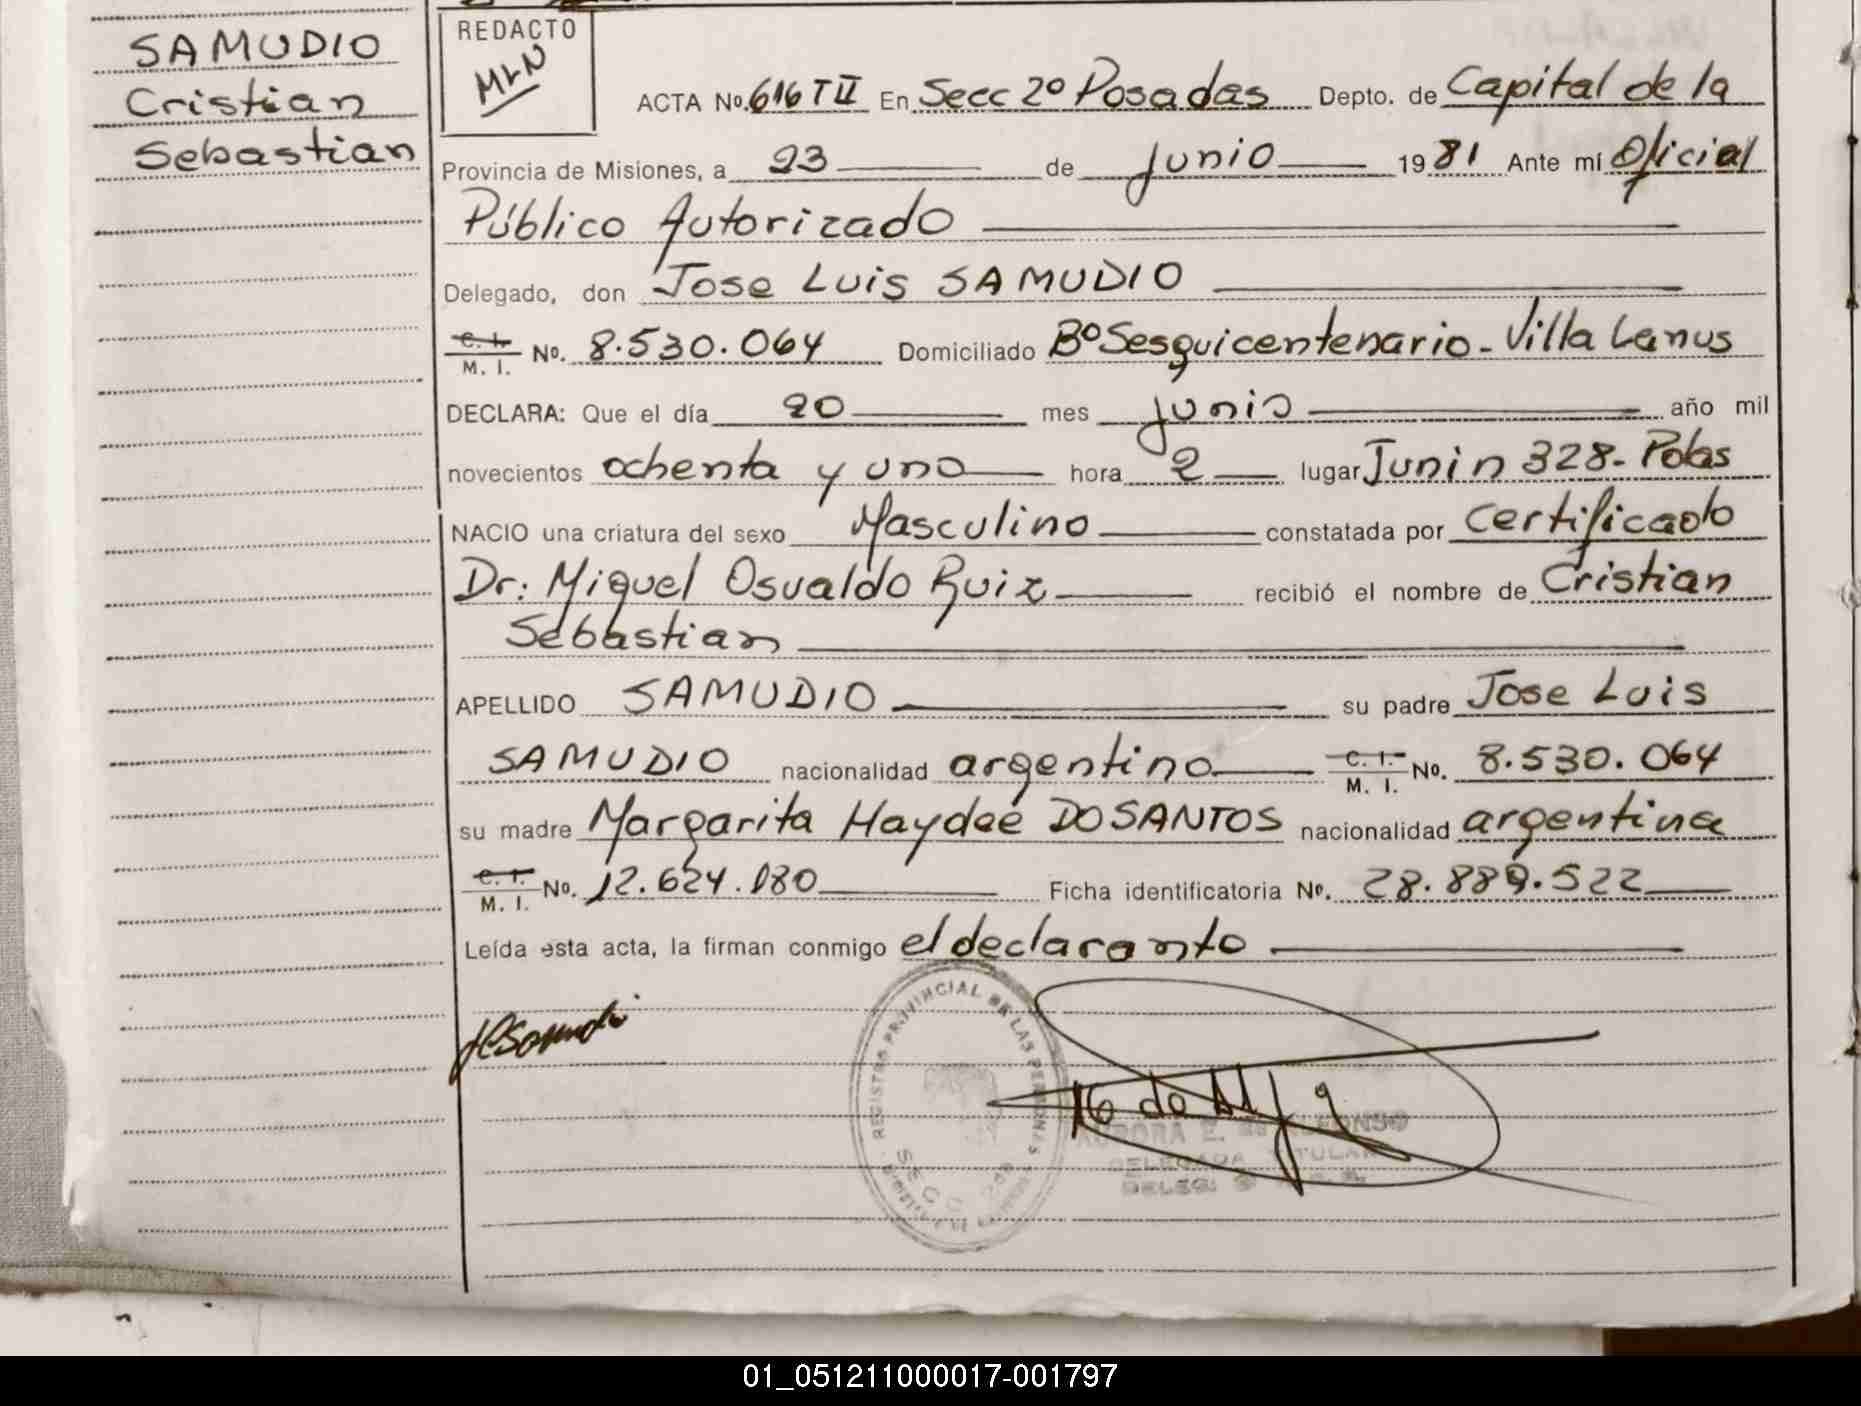 SAMUDIO
Cristian
Sebastian
REDACTO
MLN
ACTA No. 616 T II En Secc 2º Posadas Depto. de Capital de la
Provincia de Misiones, a 23 de Junio 1981 Ante mí Oficial
Público Autorizado
Delegado, don Jose Luis SAMUDIO
C. I. M. I. No. 8.530.064 Domiciliado Bº Sesquicentenario - Villa Lanus
DECLARA: Que el día 20 mes Junio año mil
novecientos ochenta y uno hora 2 lugar Junin 328 - Pdas
NACIO una criatura del sexo Masculino constatada por Certificado
Dr: Miguel Osvaldo Ruiz recibió el nombre de Cristian
Sebastian
APELLIDO SAMUDIO su padre Jose Luis
SAMUDIO nacionalidad argentino C. I. M. I. No. 8.530.064
su madre Margarita Haydee DOSANTOS nacionalidad argentina
C. I. M. I. No. 12.624.180 Ficha identificatoria No. 28.889.522
Leída esta acta, la firman conmigo el declarante
REGISTRO PROVINCIAL DE LAS PERSONAS
SECC
AURORA E. de ALFONSO
DELEGADA TITULAR
01_051211000017-001797